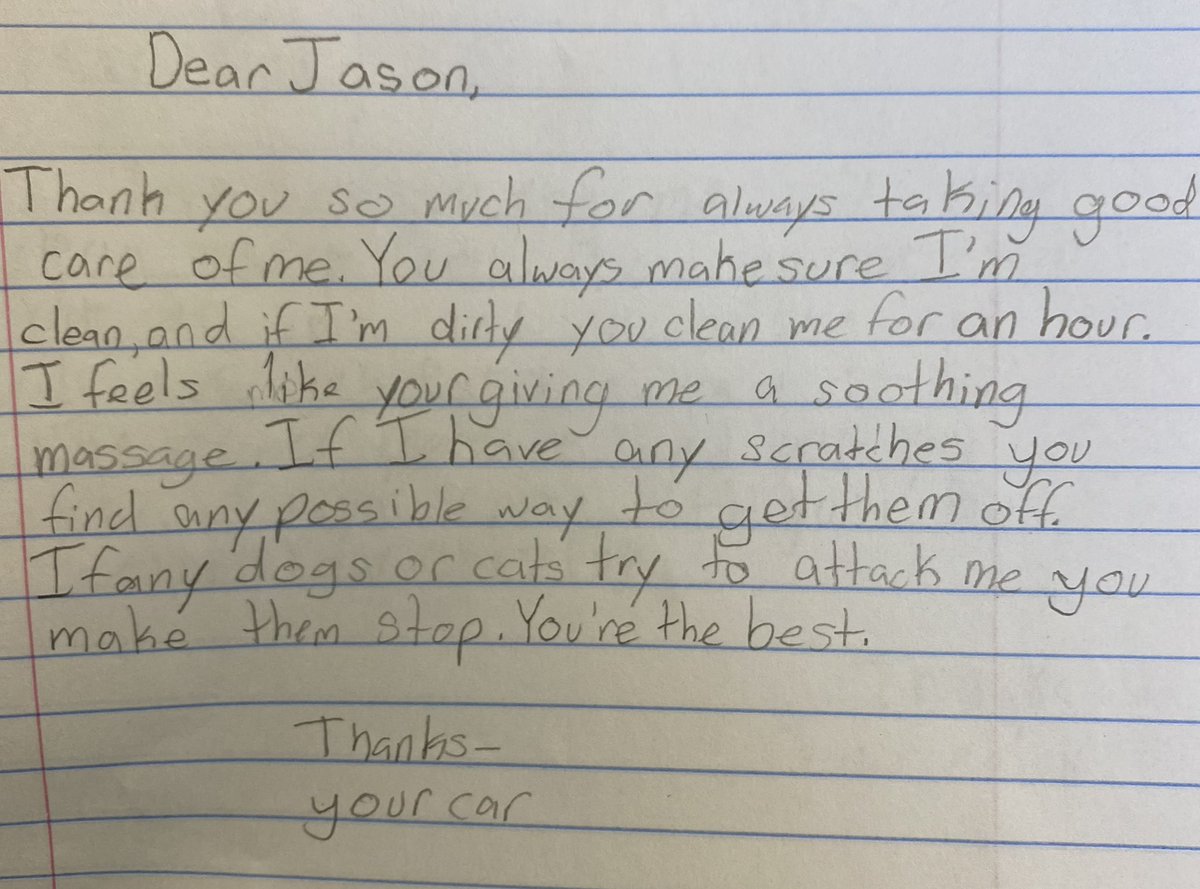 Dear Jason,
Thank you so much for always taking good
care of me. You always make sure I'm
clean, and if I'm dirty you clean me for an hour.
I feels like your giving me a soothing
massage. If I have any scratches you
find any possible way to get them off.
If any dogs or cats try to attack me you
make them stop. You're the best.
Thanks-
your car